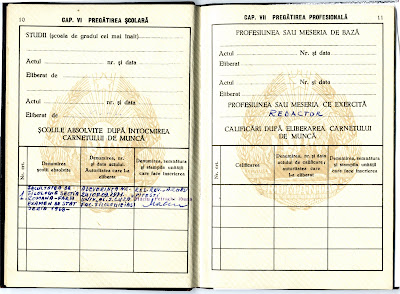 10
CAP. VI PREGĂTIREA ȘCOLARĂ
STUDII (școala de gradul cel mai înalt)
Actul nr. și data
Eliberat de
Actul nr. și data
Eliberat de
ȘCOLILE ABSOLVITE DUPĂ ÎNTOCMIREA
CARNETULUI DE MUNCĂ
Nr. crt.
Denumirea școlii absolvite
Denumirea, nr. și data actului Autoritatea care l-a eliberat
Denumirea, semnătura și stampila unității care face înscrierea
1
FACULTATEA DE
FILOLOGIE SECȚIA
ROMÂNĂ-
EXAMEN DE STAT
1968
ADEVERINȚA NR.
UNIV. AL. I. CUZA
FAC. FILOLOGIE IAȘI
11
CAP. VII PREGĂTIREA PROFESIONALĂ
PROFESIUNEA SAU MESERIA DE BAZĂ
Actul nr. și data
Eliberat de
Actul nr. și data
Eliberat de
PROFESIUNEA SAU MESERIA CE EXERCITĂ
REDACTOR
CALIFICĂRI DUPĂ ELIBERAREA CARNETULUI
DE MUNCĂ
Nr. crt.
Calificarea
Denumirea, nr. și data actului de calificare; autoritatea care l-a eliberat
Denumirea, semnătura și stampila unității care face înscrierea